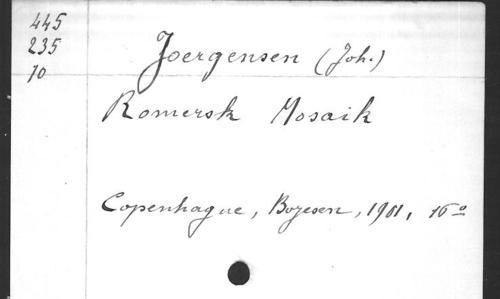 445
235
10
Joergensen (Joh.)
Romersk Mosaik
Copenhague, Bojesen, 1901, 16º